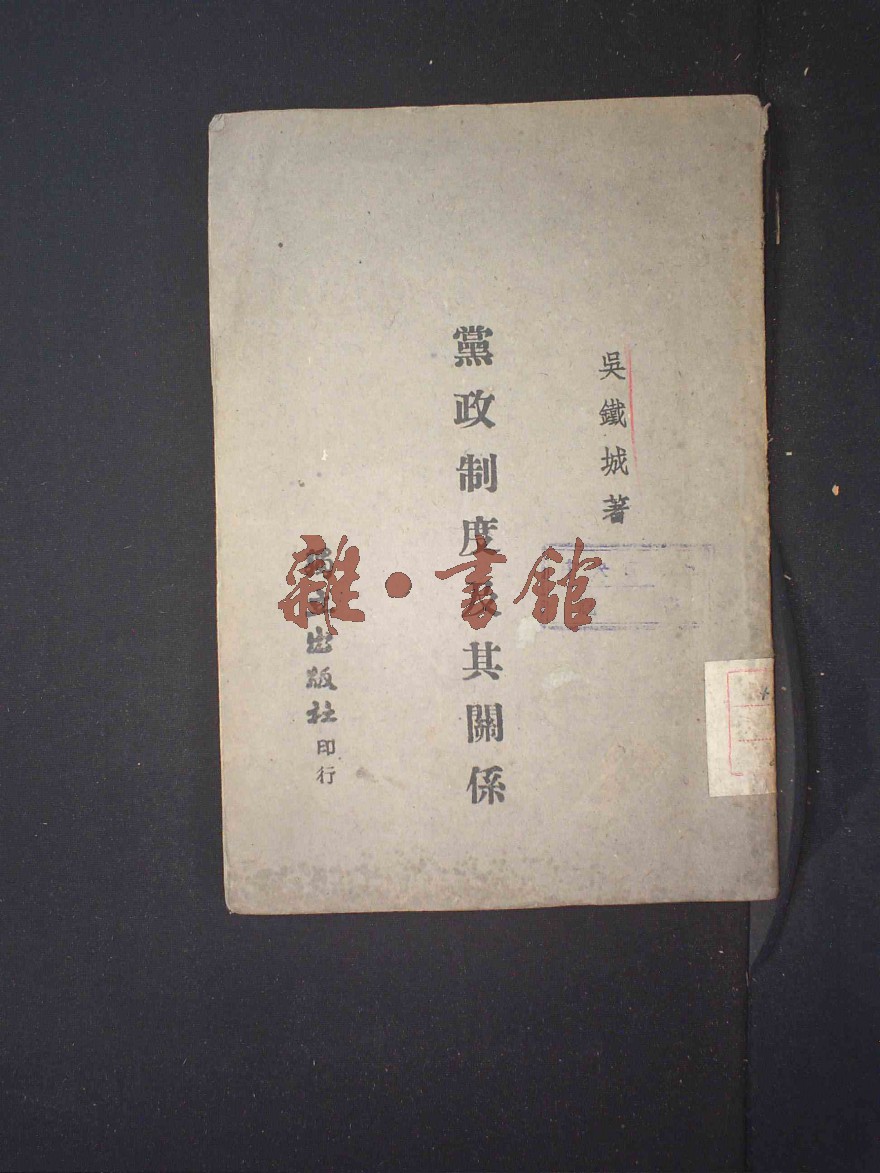 吳鐵城著
黨政制度及其關係
獨立出版社印行
雜·書館